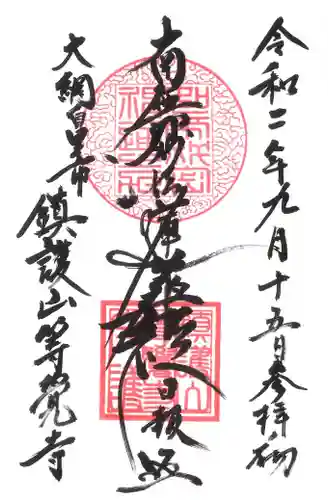 令和二年九月十五日参拝砌
南無妙法蓮華経
大網白里市
鎮護山等覚寺